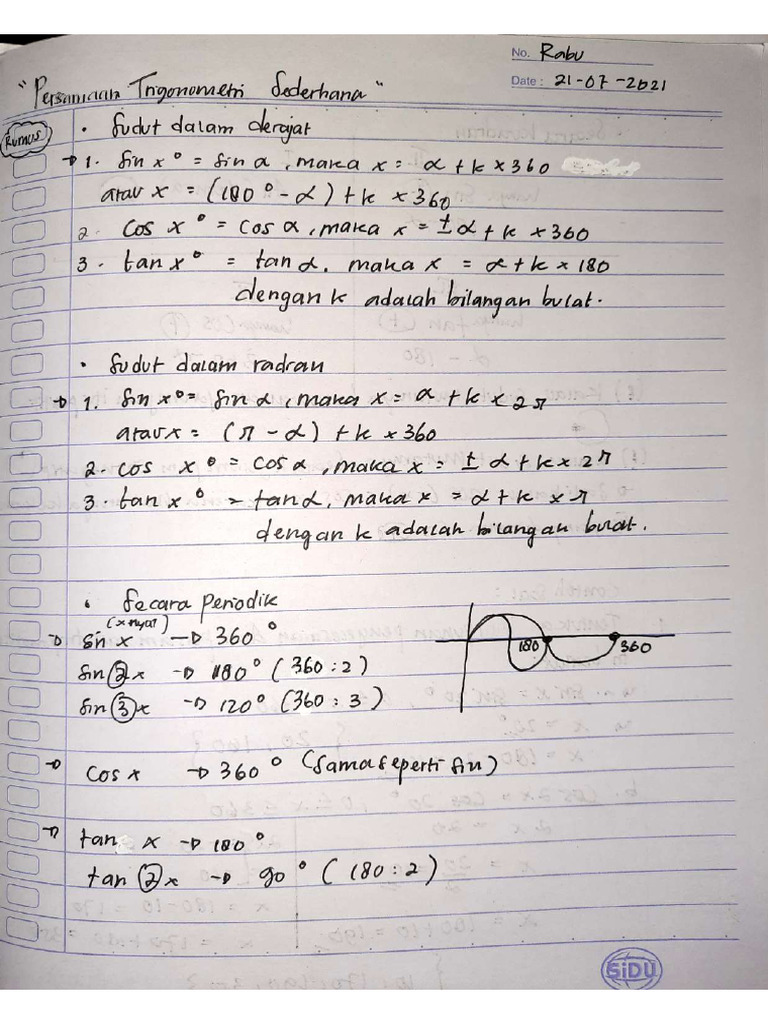 No. Rabu
Date : 21-07-2021
"Persamaan Trigonometri Sederhana"
Rumus
• Sudut dalam derajat
→ 1. Sin x° = Sin α, maka x = α + k × 360
atau x = (180° - α) + k × 360
2. Cos x° = Cos α, maka x = ± α + k × 360
3. tan x° = tan α, maka x = α + k × 180
dengan k adalah bilangan bulat.
• Sudut dalam radian
→ 1. Sin x° = Sin α, maka x = α + k × 2π
atau x = (π - α) + k × 360
2. Cos x° = Cos α, maka x = ± α + k × 2π
3. tan x° = tan α, maka x = α + k × π
dengan k adalah bilangan bulat.
• Secara Periodik
(x nya 1)
→ Sin x → 360°
Sin 2x → 180° (360 : 2)
Sin 3x → 120° (360 : 3)
180 360
→ Cos x → 360° (Sama seperti sin)
→ tan x → 180°
tan 2x → 90° (180 : 2)
SiDU